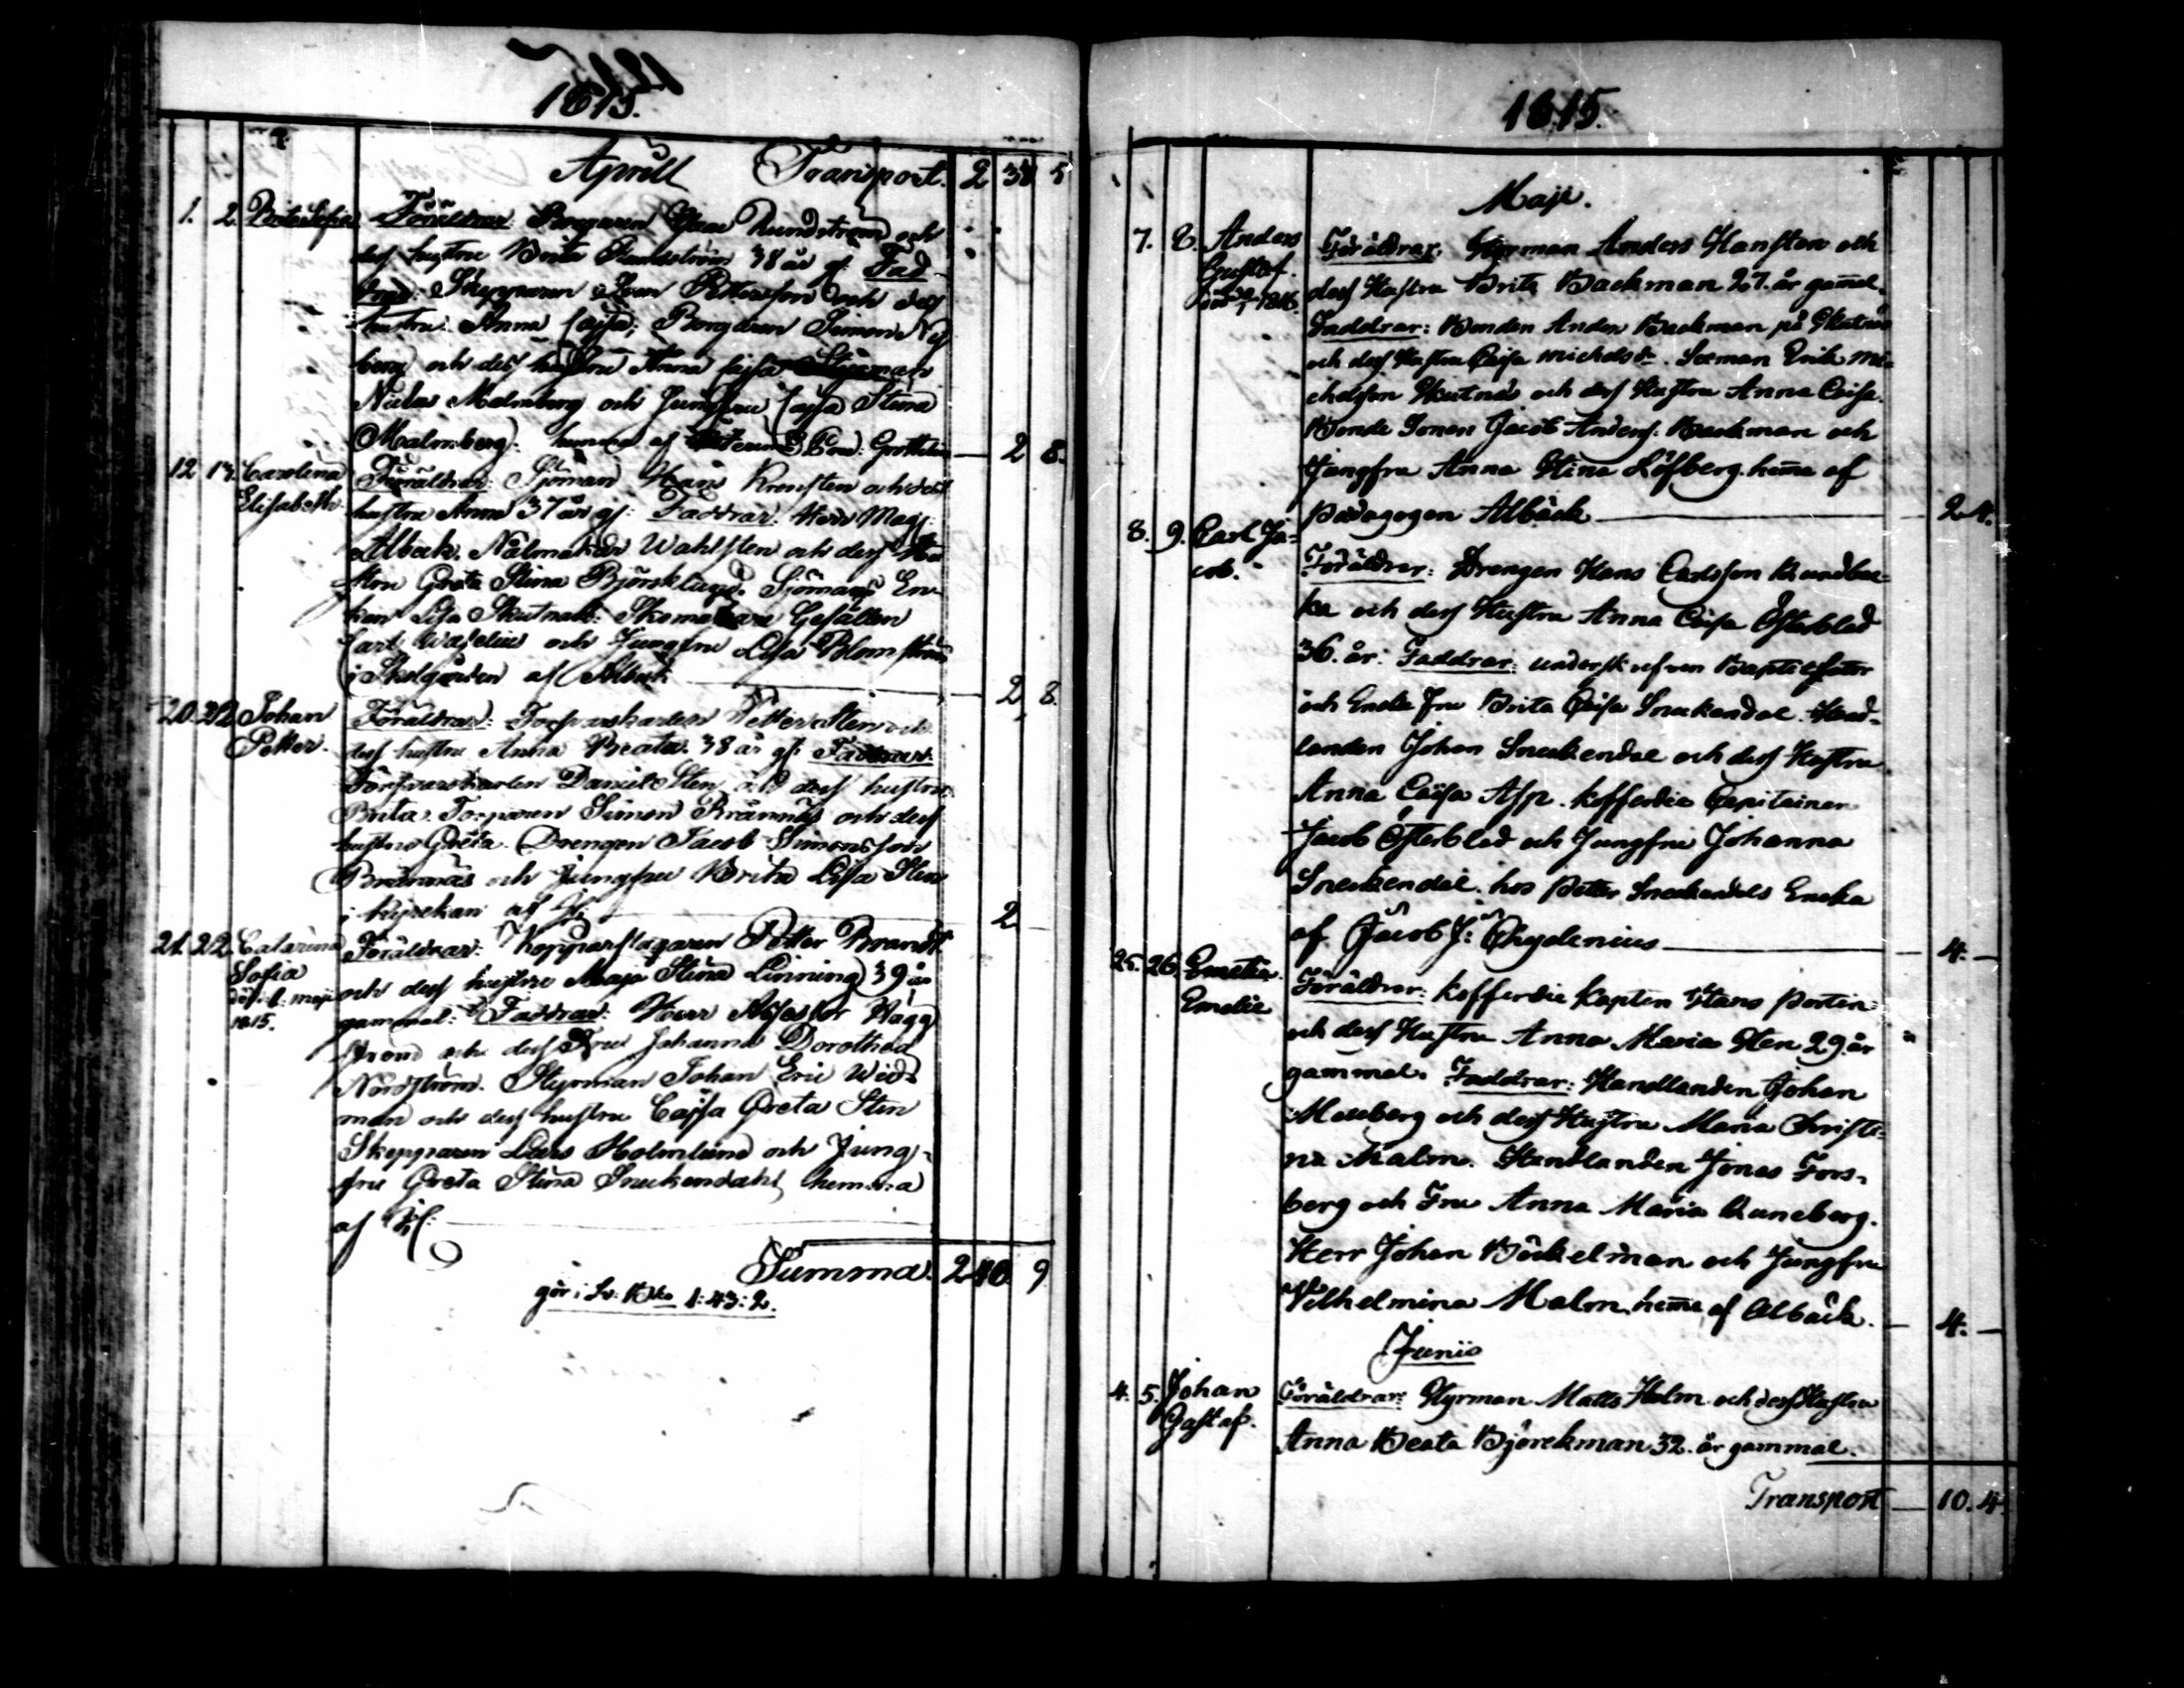 1815.
Aprill Transport. 2 38 5
1. 2. Brita Sofia Föräldrar Borgaren Rundström och
dess hustru Brita 38 år gl. Fad-
drar: Skepparen Pettersson och dess
hustru Anna Cajsa; Borgaren Simon Ny
berg och dess hustru Anna Cajsa Styrman
Niclas Malmberg och Jungfru Cajsa Stina
Malmberg. hemma af 2 8.
12 13. Carolina Föräldrar: Sjöman Hans och dess
Elisabeth hustru Anna 37 år gl: Faddrar. Herr Mag:
Albeck. Nålmakar Wahlsten och dess Hu
stru Greta Stina Björklund. Sjömans En-
kan Lisa Skutnab: Skomakare Gesällen
Carl och Jungfru Lisa Blomström
i Skolgården af Albeck 2 8.
20. 22 Johan Föräldrar: Torpvarskarlen Petter Sten och
Petter. dess hustru Anna Beata. 38 år gl: Faddrar:
Daniel Sten och dess hustru
Brita. Torparen Simon Brännäs och dess
hustru Greta. Drengen Jacob Simonsson
Brännäs och Jungfru Brita Lisa Sten
i kyrckan af 2
21. 22. Catarina Föräldrar: Kopparslagaren Petter Brandt
Sofia och dess hustru Maja Stina Linning 39 år
död. 1. maji gammal: Faddrar: Herr Assessor Wagg
1815. och dess Fru Johanna Dorothea
Nordström. Styrman Johan Eric Wid-
man och dess hustru Cajsa Greta Sten
Skepparen Lars Holmlund och Jung-
fru Greta Stina Sneckendahl hemma
af
Summa. 2 46 9
gör i Sv: Bko 1: 43: 2.
1815.
Maji.
7. 8. Anders Föräldrar: Styrman Anders Hansten och
Gustaf. dess Hustru Brita Backman 27. år gamal.
1816. Faddrar: Bonden Anders Backman på Skatnäs
och dess Hustru Caisa michelsdr. Seeman Erik mi-
chelsson Skutnäs och dess Hustru Anna Caisa.
Bonde Sonen Jacob Anders. Backman och
Jungfru Anna Stina Löfberg. heme af
pædagogen Albäck 2 4.
8. 9. Carl Ja- Föräldrar: Drengen Hans Carlsson Rundbac-
cob. ka och dess Hustru Anna Caisa Österblad
36. år. Faddrar: underskrefven Baptisator
och Encke fru Brita Caisa Sneckendal. Hand-
landen Johan Sneckendal och dess Hustru
Anna Caisa Asp. kofferdie Capitainen
Jacob Österblad och Jungfru Johanna
Sneckendal. hos Petter Sneckendals Encka
af Jacob J: Chydenius 4. —
25. 26. Föräldrar: kofferdie kapten Hans Portin
Emelie och dess Hustru Anna Maria Sten 29. år
gammal. Faddrar: Handlanden Johan
Moseberg och dess Hustru Maria Christi-
na Malm. Handlanden Jonas Fors-
berg och Fru Anna Maria Runeberg.
Herr Johan Böckelman och Jungfru
Vilhelmina Malm heme af Albäck. — 4. —
Junii
4. 5. Johan Föräldrar: Styrman Matts Holm och dess Hustru
Gustaf. Anna Beata Björckman 32. år gammal.
Transport — 10. 4.